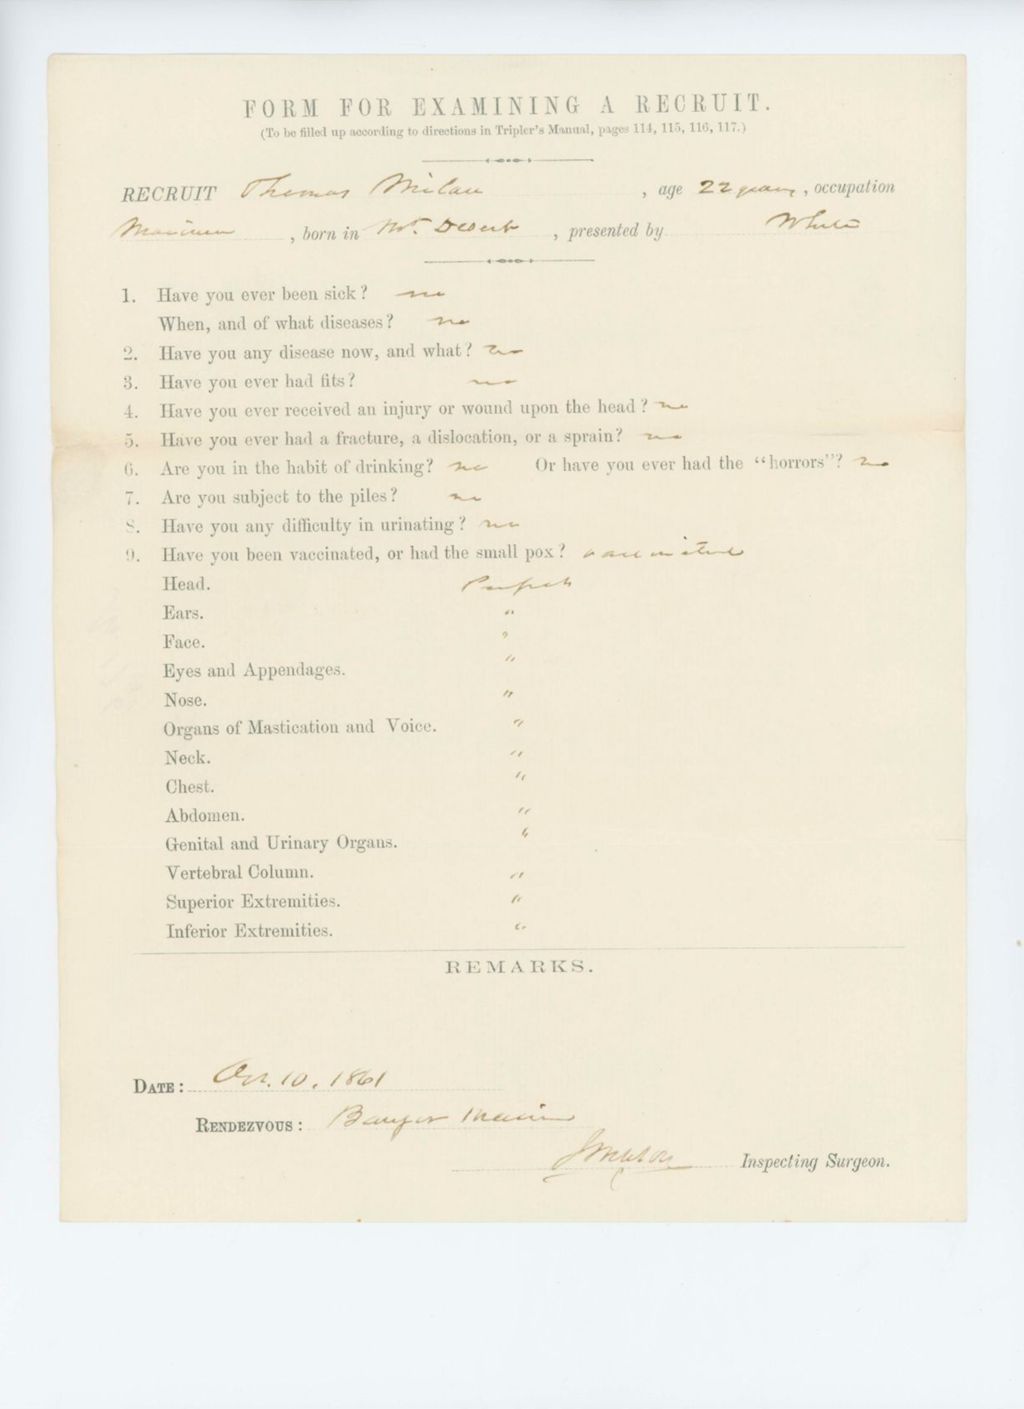 FORM FOR EXAMINING A RECRUIT.
(To be filled up according to directions in Tripler's Manual, pages 114, 115, 116, 117.)
RECRUIT Thomas Milan , age 22 years , occupation
Mariner , born in Mt. Desert , presented by White
1. Have you ever been sick? no
When, and of what diseases? no
2. Have you any disease now, and what? no
3. Have you ever had fits? no
4. Have you ever received an injury or wound upon the head? no
5. Have you ever had a fracture, a dislocation, or a sprain? no
6. Are you in the habit of drinking? no Or have you ever had the "horrors"? no
7. Are you subject to the piles? no
8. Have you any difficulty in urinating? no
9. Have you been vaccinated, or had the small pox? vaccinated
Head. Perfect
Ears. "
Face. "
Eyes and Appendages. "
Nose. "
Organs of Mastication and Voice. "
Neck. "
Chest. "
Abdomen. "
Genital and Urinary Organs. "
Vertebral Column. "
Superior Extremities. "
Inferior Extremities. "
REMARKS.
DATE: Oct. 10, 1861
RENDEZVOUS: Bangor Maine
Inspecting Surgeon.